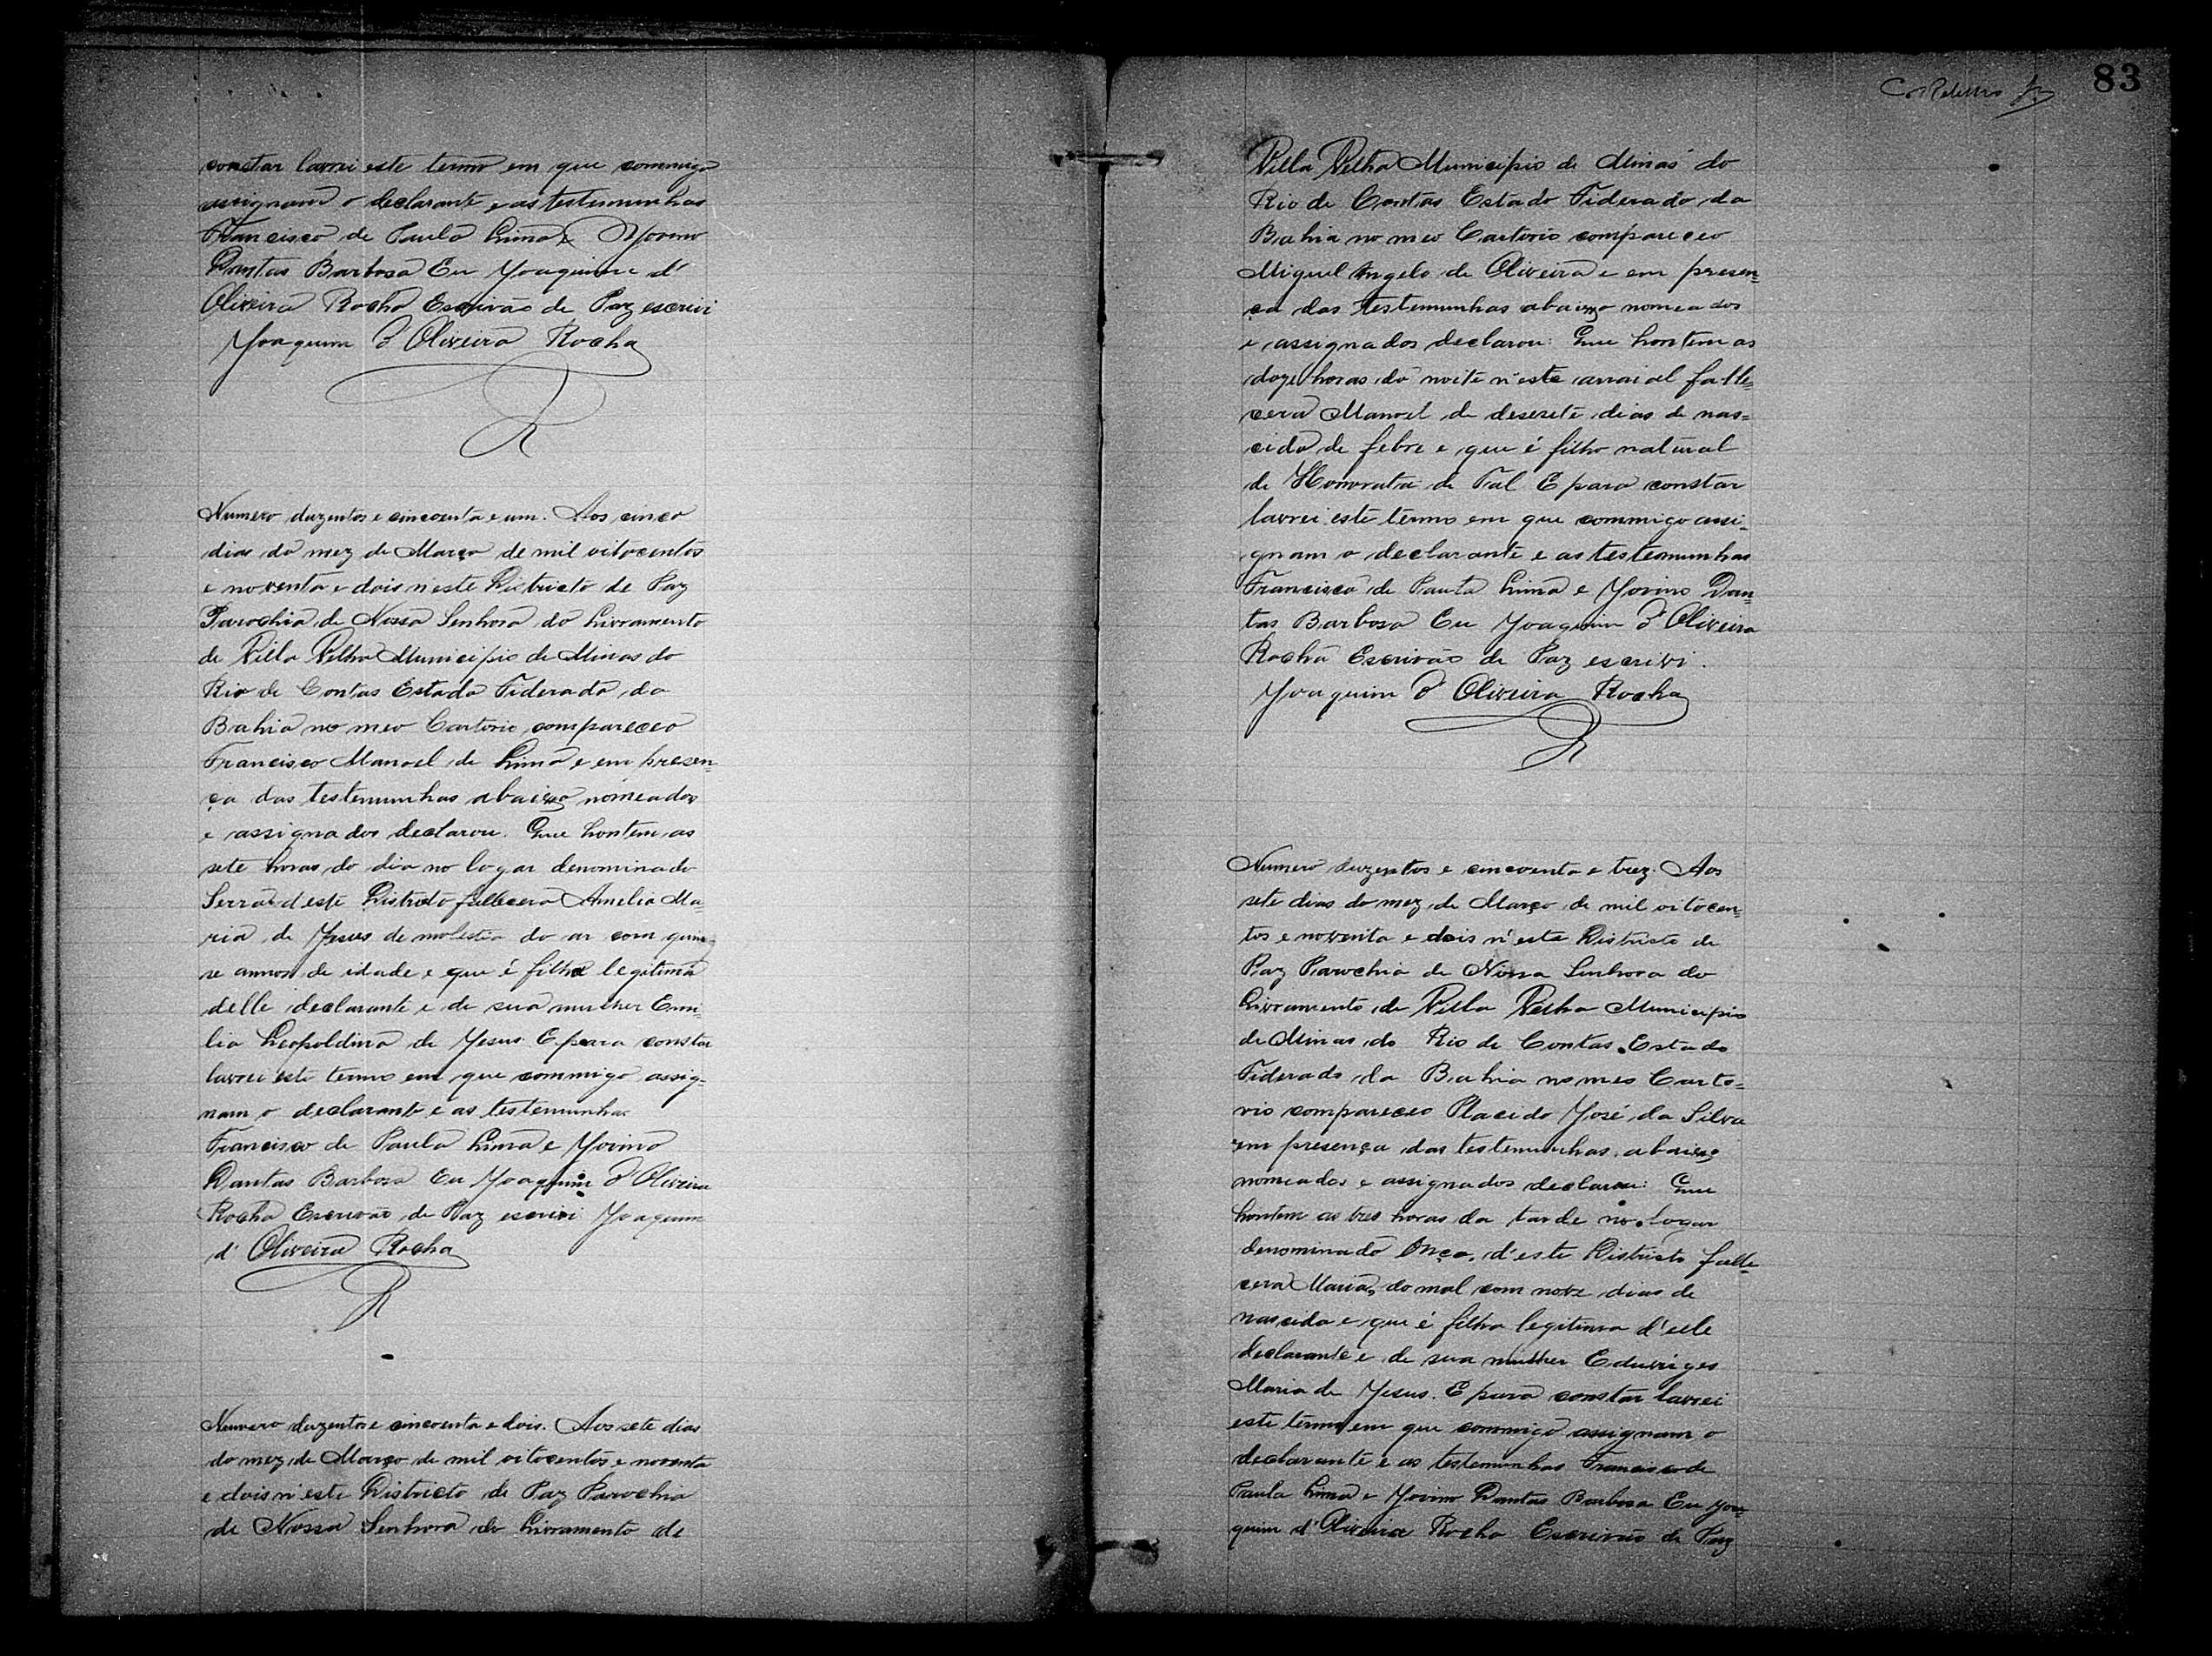 constar lavrei este termo em que commigo
assignam o declarante e as testemunhas
Francisco de Paula Lima e Yovino
Dantas Barbosa Eu Yoaquim d'
Oliveira Rocha Escrivão de Paz escrivi
Yoaquim d'Oliveira Rocha
Numero duzentos e cincoenta e um. Aos cinco
dias do mez de Março de mil oitocentos
e noventa e dois n'este Districto de Paz
Parochia de Nossa Senhora do Livramento
de Villa Velha Municipio de Minas do
Rio de Contas Estado Federado da
Bahia no meo Cartorio compareceo
Francisco Manoel de Lima e em presen=
ça das testemunhas abaixo nomeados
e assignados declarou. Que hontem as
sete horas do dia no logar denominado
Serra d'este Districto fallecera Amelia Ma=
ria de Jesus de molestia do ar com quin=
se annos de idade e que é filha legitima
delle declarante e de sua mulher Emi=
lia Leopoldina de Yesus E para constar
lavrei este termo em que commigo assig=
nam o declarante e as testemunhas
Francisco de Paula Lima e Yovino
Dantas Barbosa Eu Yoaquim d'Oliveira
Rocha Escrivão de Paz escrivi Yoaquim
d' Oliveira Rocha
Numero duzentos e cincoenta e dois. Aos sete dias
do mez de Março de mil oitocentos e noventa
e dois n'este Districto de Paz Parochia
de Nossa Senhora do Livramento de
83
Villa Velha Municipio de Minas do
Rio de Contas Estado Federado da
Bahia no meo Cartorio compareceo
Miguel Angelo de Oliveira e em presen=
ça das testemunhas abaixo nomeados
e assignados declarou: Que hontem as
doze horas da noite n'este arraial falle=
cera Manoel de desesete dias de nas=
cido de febre e que é filho natural
de Honorata de Tal E para constar
lavrei este termo em que commigo assi=
gnam o declarante e as testemunhas
Francisco de Paula Lima e Yovino Dan=
tas Barbosa Eu Yoaquim d'Oliveira
Rocha Escrivão de Paz escrivi.
Yoaquim d'Oliveira Rocha
Numero duzentos e cincoenta e trez. Aos
sete dias do mez de Março de mil oitocen=
tos e noventa e dois n'este Districto de
Paz Parochia de Nossa Senhora do
Livramento de Villa Velha Municipio
de Minas do Rio de Contas Estado
Federado da Bahia no meo Carto=
rio compareceo Placido José da Silva
em presença das testemunhas abaixo
nomeados e assignados declarou: Que
hontem as tres horas da tarde no logar
denominado Onça d'este Districto falle=
cera Maria, do mal com nove dias de
nascida e que é filha legitima d'elle
declarante e de sua mulher Eduviges
Maria de Yesus. E para constar lavrei
este termo em que commigo assignam o
declarante e as testemunhas Francisco de
Paula Lima e Yovino Dantas Barbosa Eu Yoa=
quim d'Oliveira Rocha Escrivão de Paz